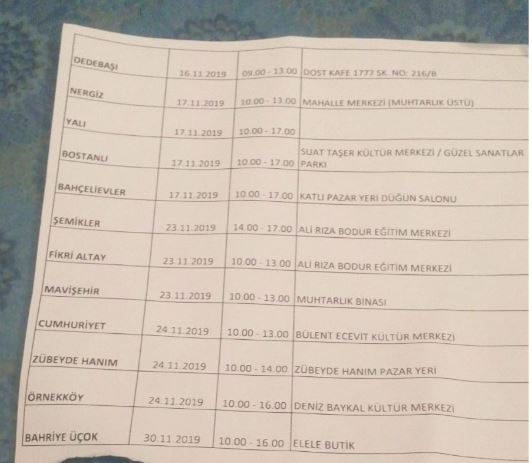 DEDEBAŞI 16.11.2019 09.00 - 13.00 DOST KAFE 1777 SK. NO: 216/B
NERGİZ 17.11.2019 10.00 - 13.00 MAHALLE MERKEZİ (MUHTARLIK ÜSTÜ)
YALI 17.11.2019 10.00 - 17.00
BOSTANLI 17.11.2019 10.00 - 17.00 SUAT TAŞER KÜLTÜR MERKEZİ / GÜZEL SANATLAR
PARKI
BAHÇELİEVLER 17.11.2019 10.00 - 17.00 KATLI PAZAR YERİ DÜĞÜN SALONU
ŞEMİKLER 23.11.2019 14.00 - 17.00 ALİ RIZA BODUR EĞİTİM MERKEZİ
FİKRİ ALTAY 23.11.2019 10.00 - 13.00 ALİ RIZA BODUR EĞİTİM MERKEZİ
MAVİŞEHİR 23.11.2019 10.00 - 13.00 MUHTARLIK BİNASI
CUMHURİYET 24.11.2019 10.00 - 13.00 BÜLENT ECEVİT KÜLTÜR MERKEZİ
ZÜBEYDE HANIM 24.11.2019 10.00 - 14.00 ZÜBEYDE HANIM PAZAR YERİ
ÖRNEKKÖY 24.11.2019 10.00 - 16.00 DENİZ BAYKAL KÜLTÜR MERKEZİ
BAHRİYE ÜÇOK 30.11.2019 10.00 - 16.00 ELELE BUTİK